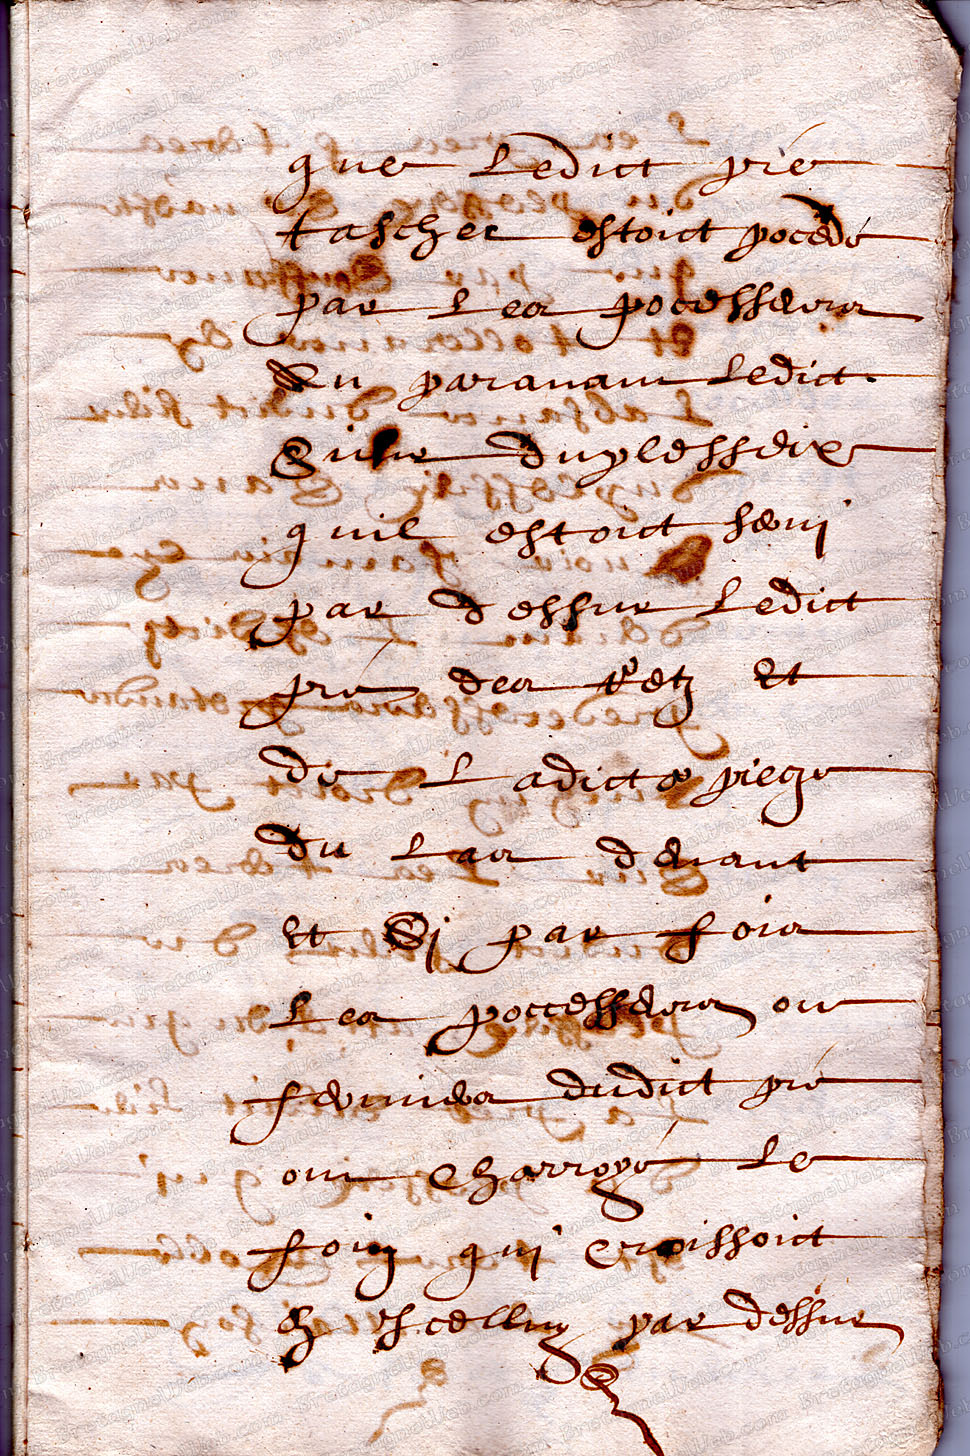 que Ledict pré
tascher estoict pocédé
par Les pocesseurs
du paravant Ledict
Sieur duplesseix
quil estoict servi
par dessur Ledict
pré des retz Et
de Ladicte piecze
du Las devant
Et Si par fois
Les poccesseurs ou
fermiers dudict pré
ont charroyé Le
foing qui croissoict
en Icelluy par dessur